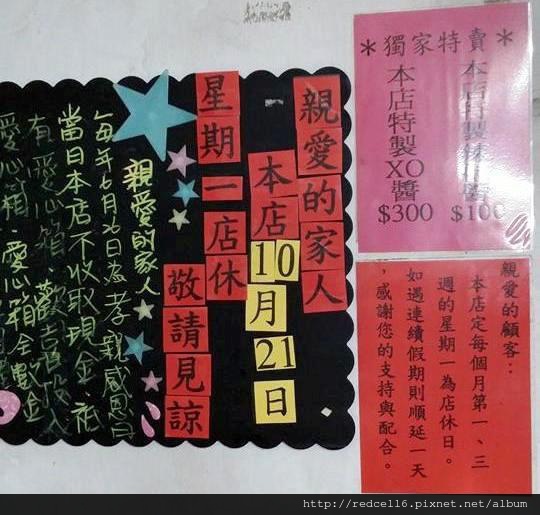 親愛的家人
本店10月21日
星期一店休
敬請見諒
親愛的家人
每年6月26日為孝親感恩日
當日本店不收取現金，祇
有愛心箱，歡喜投入
愛心箱，愛心箱全數金
＊獨家特賣＊
本店特製辣
$100
本店特製XO醬
$300
親愛的顧客：
本店定每個月第一、三
週的星期一為店休日。
如遇連續假期則順延一天
，感謝您的支持與配合。
http://redcell6.pixnet.net/album